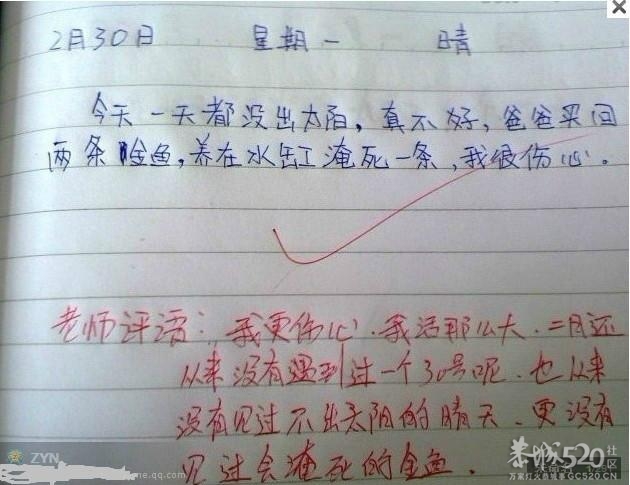 2月30日 星期一 晴
今天一天都没出太阳，真不好，爸爸买回
两条金鱼，养在水缸淹死一条，我很伤心。
老师评语：我更伤心．我活那么大．二月还
从来没有遇到过一个30号呢．也从来
没有见过不出太阳的晴天．更没有
见过会淹死的金鱼．
ZYN
me.qq.com
恭城520社区
万家灯火恭城 GC520.CN